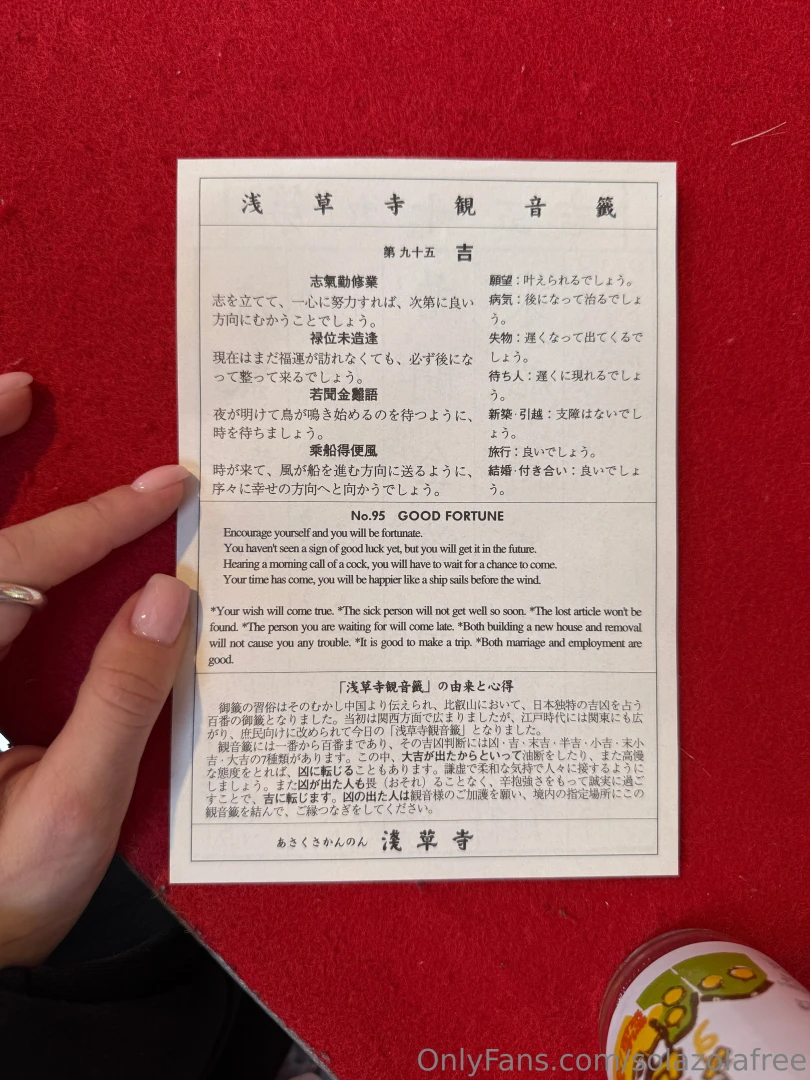 浅草寺観音籤
第九十五 吉
志氣勤修業
志を立てて、一心に努力すれば、次第に良い
方向にむかうことでしょう。
禄位未造逢
現在はまだ福運が訪れなくても、必ず後にな
って整って来るでしょう。
若聞金雞語
夜が明けて鳥が鳴き始めるのを待つように、
時を待ちましょう。
乗船得便風
時が来て、風が船を進む方向に送るように、
序々に幸せの方向へと向かうでしょう。
願望：叶えられるでしょう。
病気：後になって治るでしょ
う。
失物：遅くなって出てくるで
しょう。
待ち人：遅くに現れるでしょ
う。
新築·引越：支障はないでし
ょう。
旅行：良いでしょう。
結婚·付き合い：良いでしょ
う。
No.95 GOOD FORTUNE
Encourage yourself and you will be fortunate.
You haven't seen a sign of good luck yet, but you will get it in the future.
Hearing a morning call of a cock, you will have to wait for a chance to come.
Your time has come, you will be happier like a ship sails before the wind.
*Your wish will come true. *The sick person will not get well so soon. *The lost article won't be
found. *The person you are waiting for will come late. *Both building a new house and removal
will not cause you any trouble. *It is good to make a trip. *Both marriage and employment are
good.
「浅草寺観音籤」の由来と心得
御籤の習俗はそのむかし中国より伝えられ、比叡山において、日本独特の吉凶を占う
百番の御籤となりました。当初は関西方面で広まりましたが、江戸時代には関東にも広
がり、庶民向けに改められて今日の「浅草寺観音籤」となりました。
観音籤には一番から百番まであり、その吉凶判断には凶·吉·末吉·半吉·小吉·末小
吉·大吉の7種類があります。この中、大吉が出たからといって油断をしたり、また高慢
な態度をとれば、凶に転じることもあります。謙虚で柔和な気持で人々に接するように
しましょう。また凶が出た人も畏（おそれ）ることなく、辛抱強さをもって誠実に過ご
すことで、吉に転じます。凶の出た人は観音様のご加護を願い、境内の指定場所にこの
観音籤を結んで、ご縁つなぎをしてください。
あさくさかんのん 浅草寺
OnlyFans.com/solazolafree